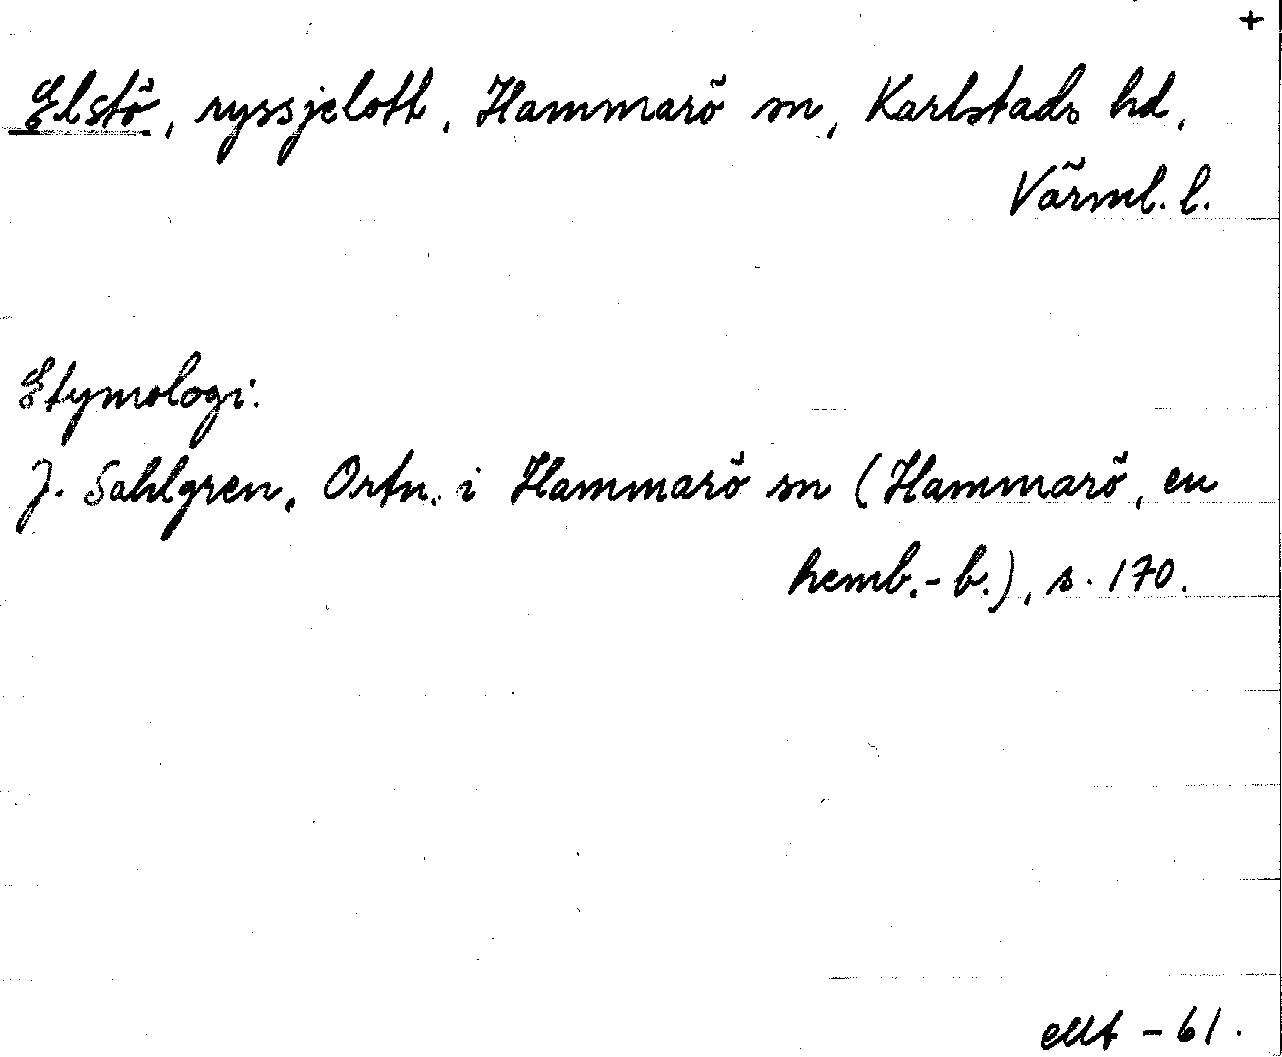 +
Elstö, ryssjelott, Hammarö sn, Karlstads hd,
Värml. l.
Etymologi.
J. Sahlgren, Ortn. i Hammarö sn (Hammarö, en
hemb.-b.), s. 170.
-61.